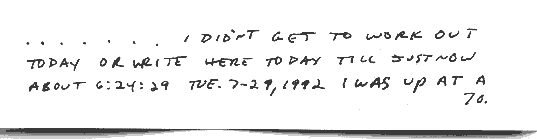 . . . . . . . I DIDN'T GET TO WORK OUT
TODAY OR WRITE HERE TODAY TILL JUST NOW
ABOUT 6:24:29 TUE. 7-29, 1992 I WAS UP AT A
70.